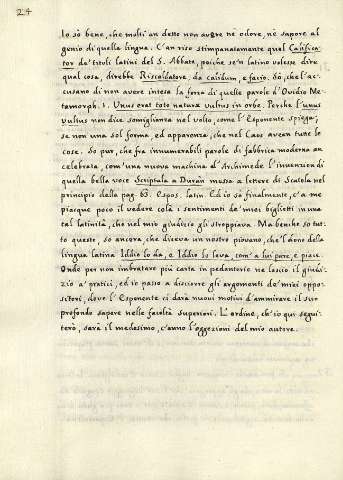 24
Io sò bene, che molti an desto non avere nè odore, nè sapore al
genio di quella lingua. C'an riso stimpanatamente quel Califica
tor de' titoli latini del S. Abbate, poiche se'n latino volesse dire
qual cosa, direbbe Riscoldatore, da calidum, e facio. Sò, che l'ac=
cusano di non avere intesa la forza di quelle parole d'Ovidio Me=
tamorph. 1. Unus erat toto natura vultus in orbe. Perche l'unus
vultus non dice somiglianza nel volto, come l'Esponente spiega;
se non una sol forma, ed apparenza, che nel Caos avean tutte le
cose. Sò pur, che fra innumerabili parole di fabbrica moderna an
celebrata, com'una nuova machina d'Archimede l'invenzion di
quella bella voce Scriptula a Duran messa a lettere di Scatola nel
principio della pag. 63. Espos. latin. Ed io sà finalmente, c'a me
piacque poco il vedere colà i sentimenti de' miei biglietti in una
tal latinità, che nel mio giudizio gli stroppiava. Ma benche so tut=
to questo, so ancora che diceva un nostro piovano, che'l dono della
lingua latina Iddio lo da, e Iddio lo leva, com' a lui pare, e piace.
Onde per non imbratare più carta in pedanterie ne lascio il giudi=
zio a' pratici, ed io passo a discorre gli argomenti de' miei oppo=
sitori, dove l'Esponente ci darà nuovi motivi d'ammirare il suo
profondo sapere nelle facoltà superiori. L'ordine, ch'io qui segui=
terò, sarà il medesimo, c'anno l'oggezioni del mio autore.